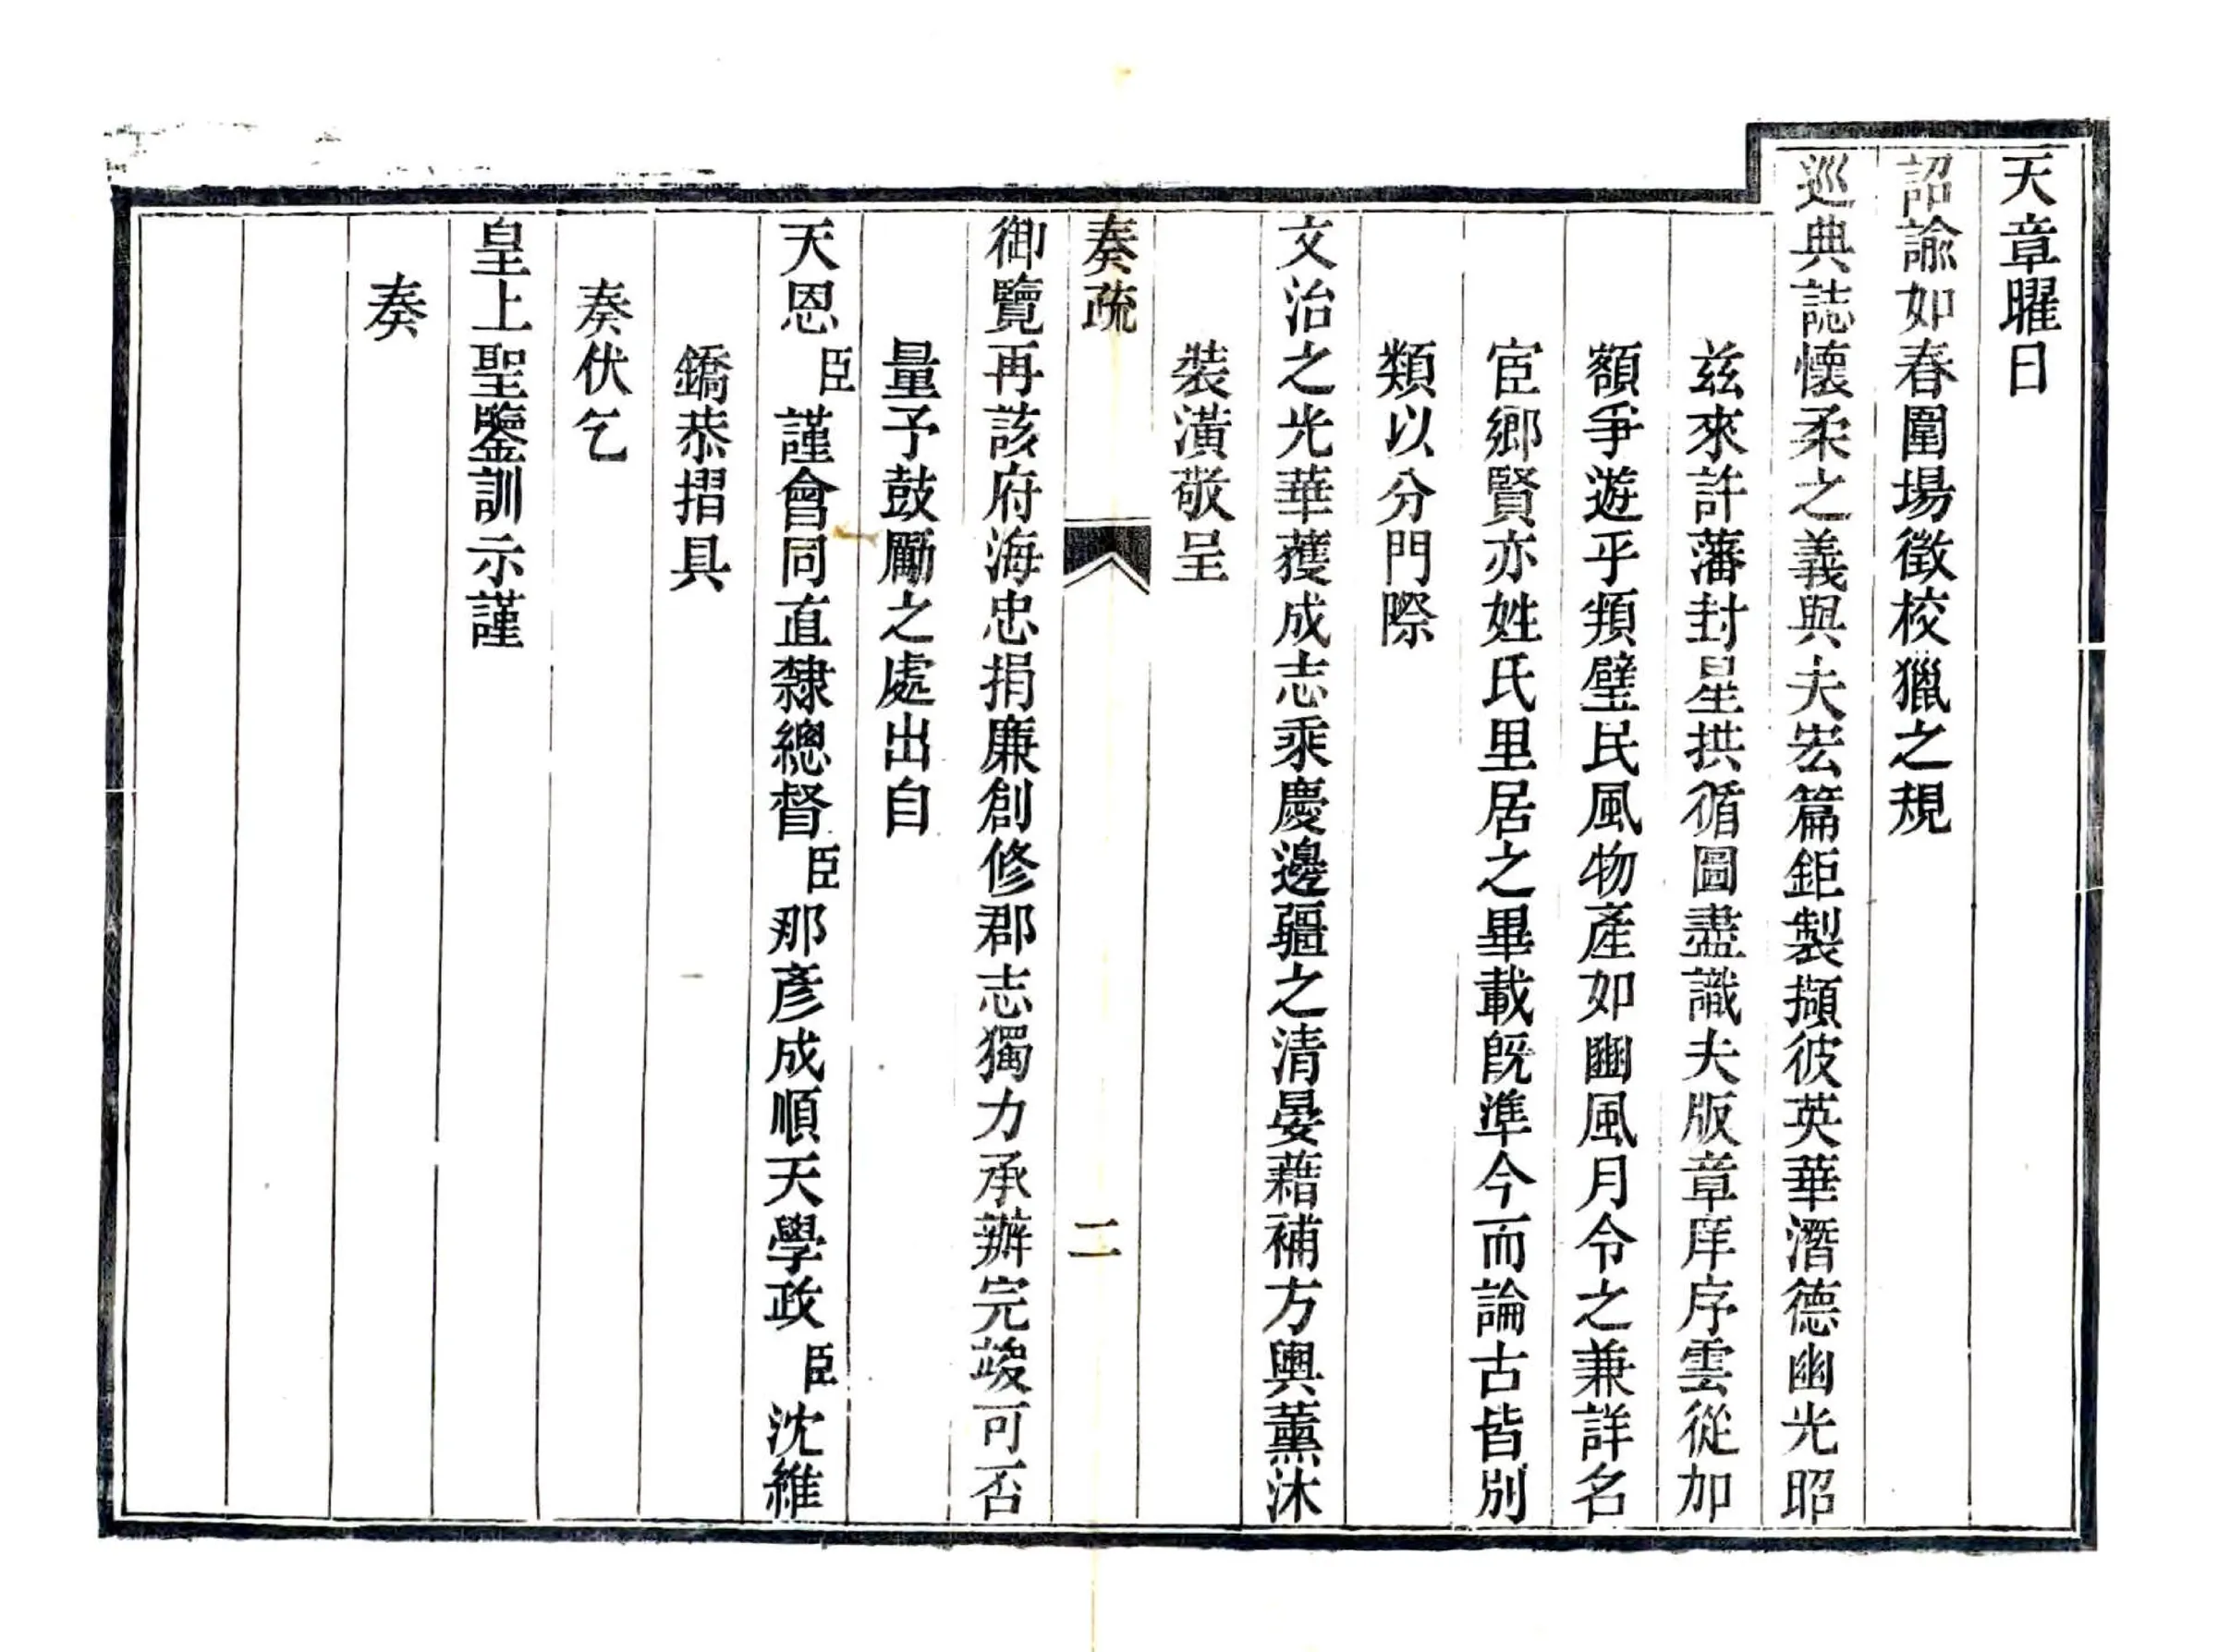 天章曜日
詔諭如春圍場徵校獵之規
巡典誌懷柔之義與夫宏篇鉅製擷彼英華潛德幽光昭
兹來許藩封星拱循圖盡識夫版章庠序雲從加
額爭遊乎頖璧民風物產如豳風月令之兼詳名
宦鄉賢亦姓氏里居之畢載旣準今而論古皆別
類以分門際
文治之光華蒦成志乘慶邊疆之清晏藉補方輿薰沐
裝潢敬呈
奏疏
二
御覽再該府海忠捐廉創修郡志獨力承辦完竣可否
量予鼓勵之處出自
天恩臣謹會同直隸總督臣那彥成順天學政臣沈維
鐈恭摺具
奏伏乞
皇上聖鑒訓示謹
奏